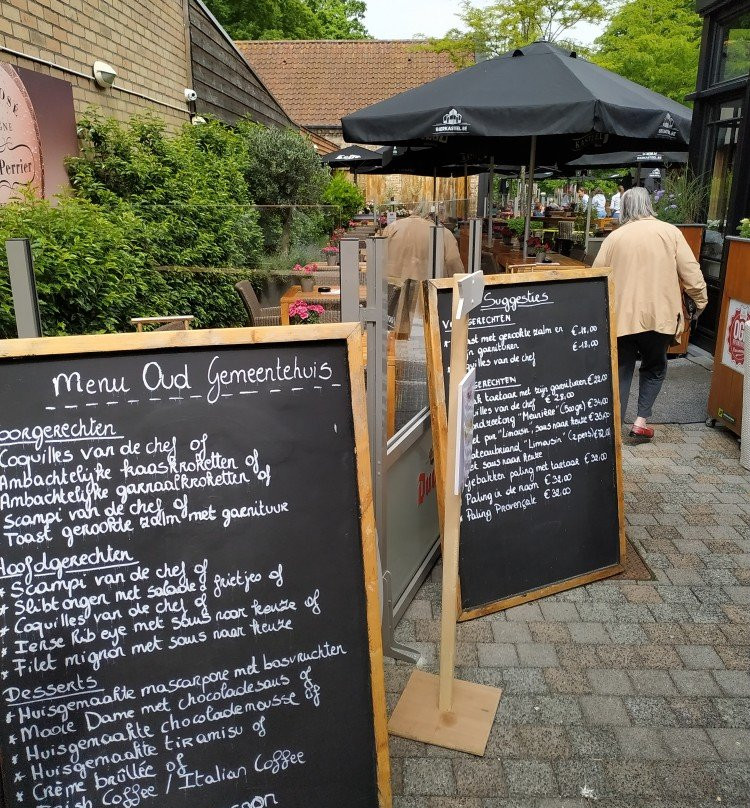 OSÉ
GNE
Perrier
BIERKASTEEL.BE
Menu Oud Gemeentehuis
oorgerechten
Coquilles van de chef of
Ambachtelijke kaaskroketten of
Ambachtelijke garnaalkroketten of
Scampi van de chef of
Toast gerookte zalm met garnituur
Hoofdgerechten
* Scampi van de chef of
* Slibtongen met salade & frietjes of
* Coquilles van de chef of
* Ierse Rib eye met saus naar keuze of
* Filet mignon met saus naar keuze
Desserts
* Huisgemaakte mascarpone met bosvruchten
* Mooie Dame met chocoladesaus of
* Huisgemaakte chocolademousse of
* Huisgemaakte tiramisu of
* Crème brûllée of
Irish Coffee / Italian Coffee
Suggesties
GERECHTEN
ast met gerookte zalm en €18,00
ijn garnituren
quilles van de chef €18,00
GERECHTEN
tartaar met zijn garnituren €22,00
uilles van de chef €28,00
"Meunière" €34,00
pur "Limousin", saus naar keuze €35,00
ateaubriand "Limousin" (2 pers)
et saus naar keuze
gebakken paling met tartaar €32,00
Paling in de room €32,00
Paling Provençale €32,00
Du